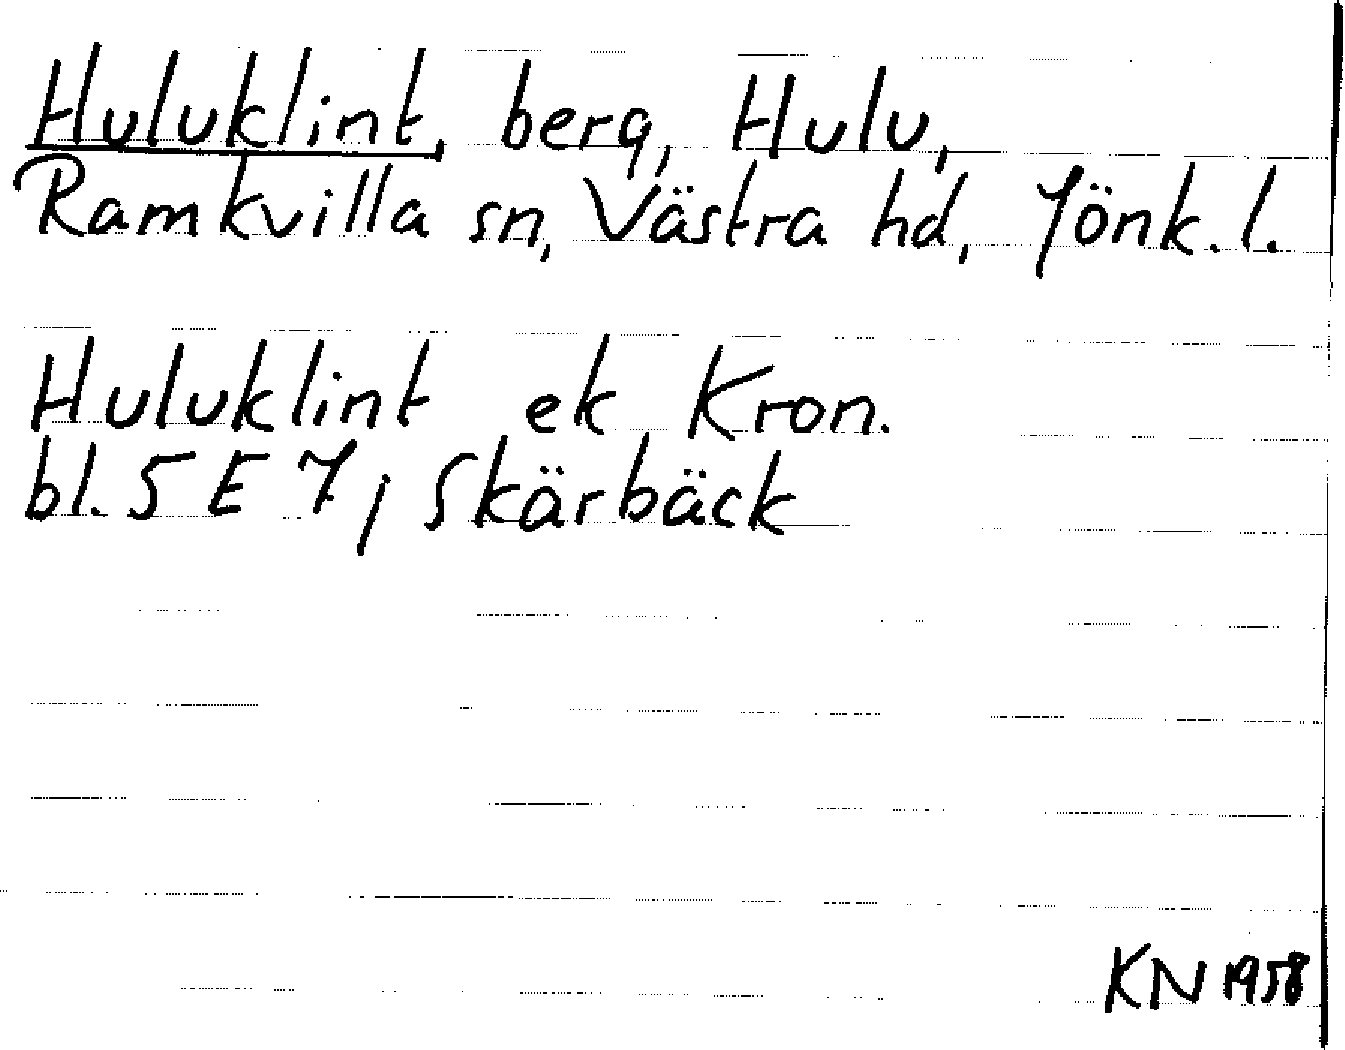 Huluklint, berg, Hulu,
Ramkvilla sn, Västra hd, Jönk. l.
Huluklint ek Kron.
bl. 5 E 7, Skärbäck
KN 1958